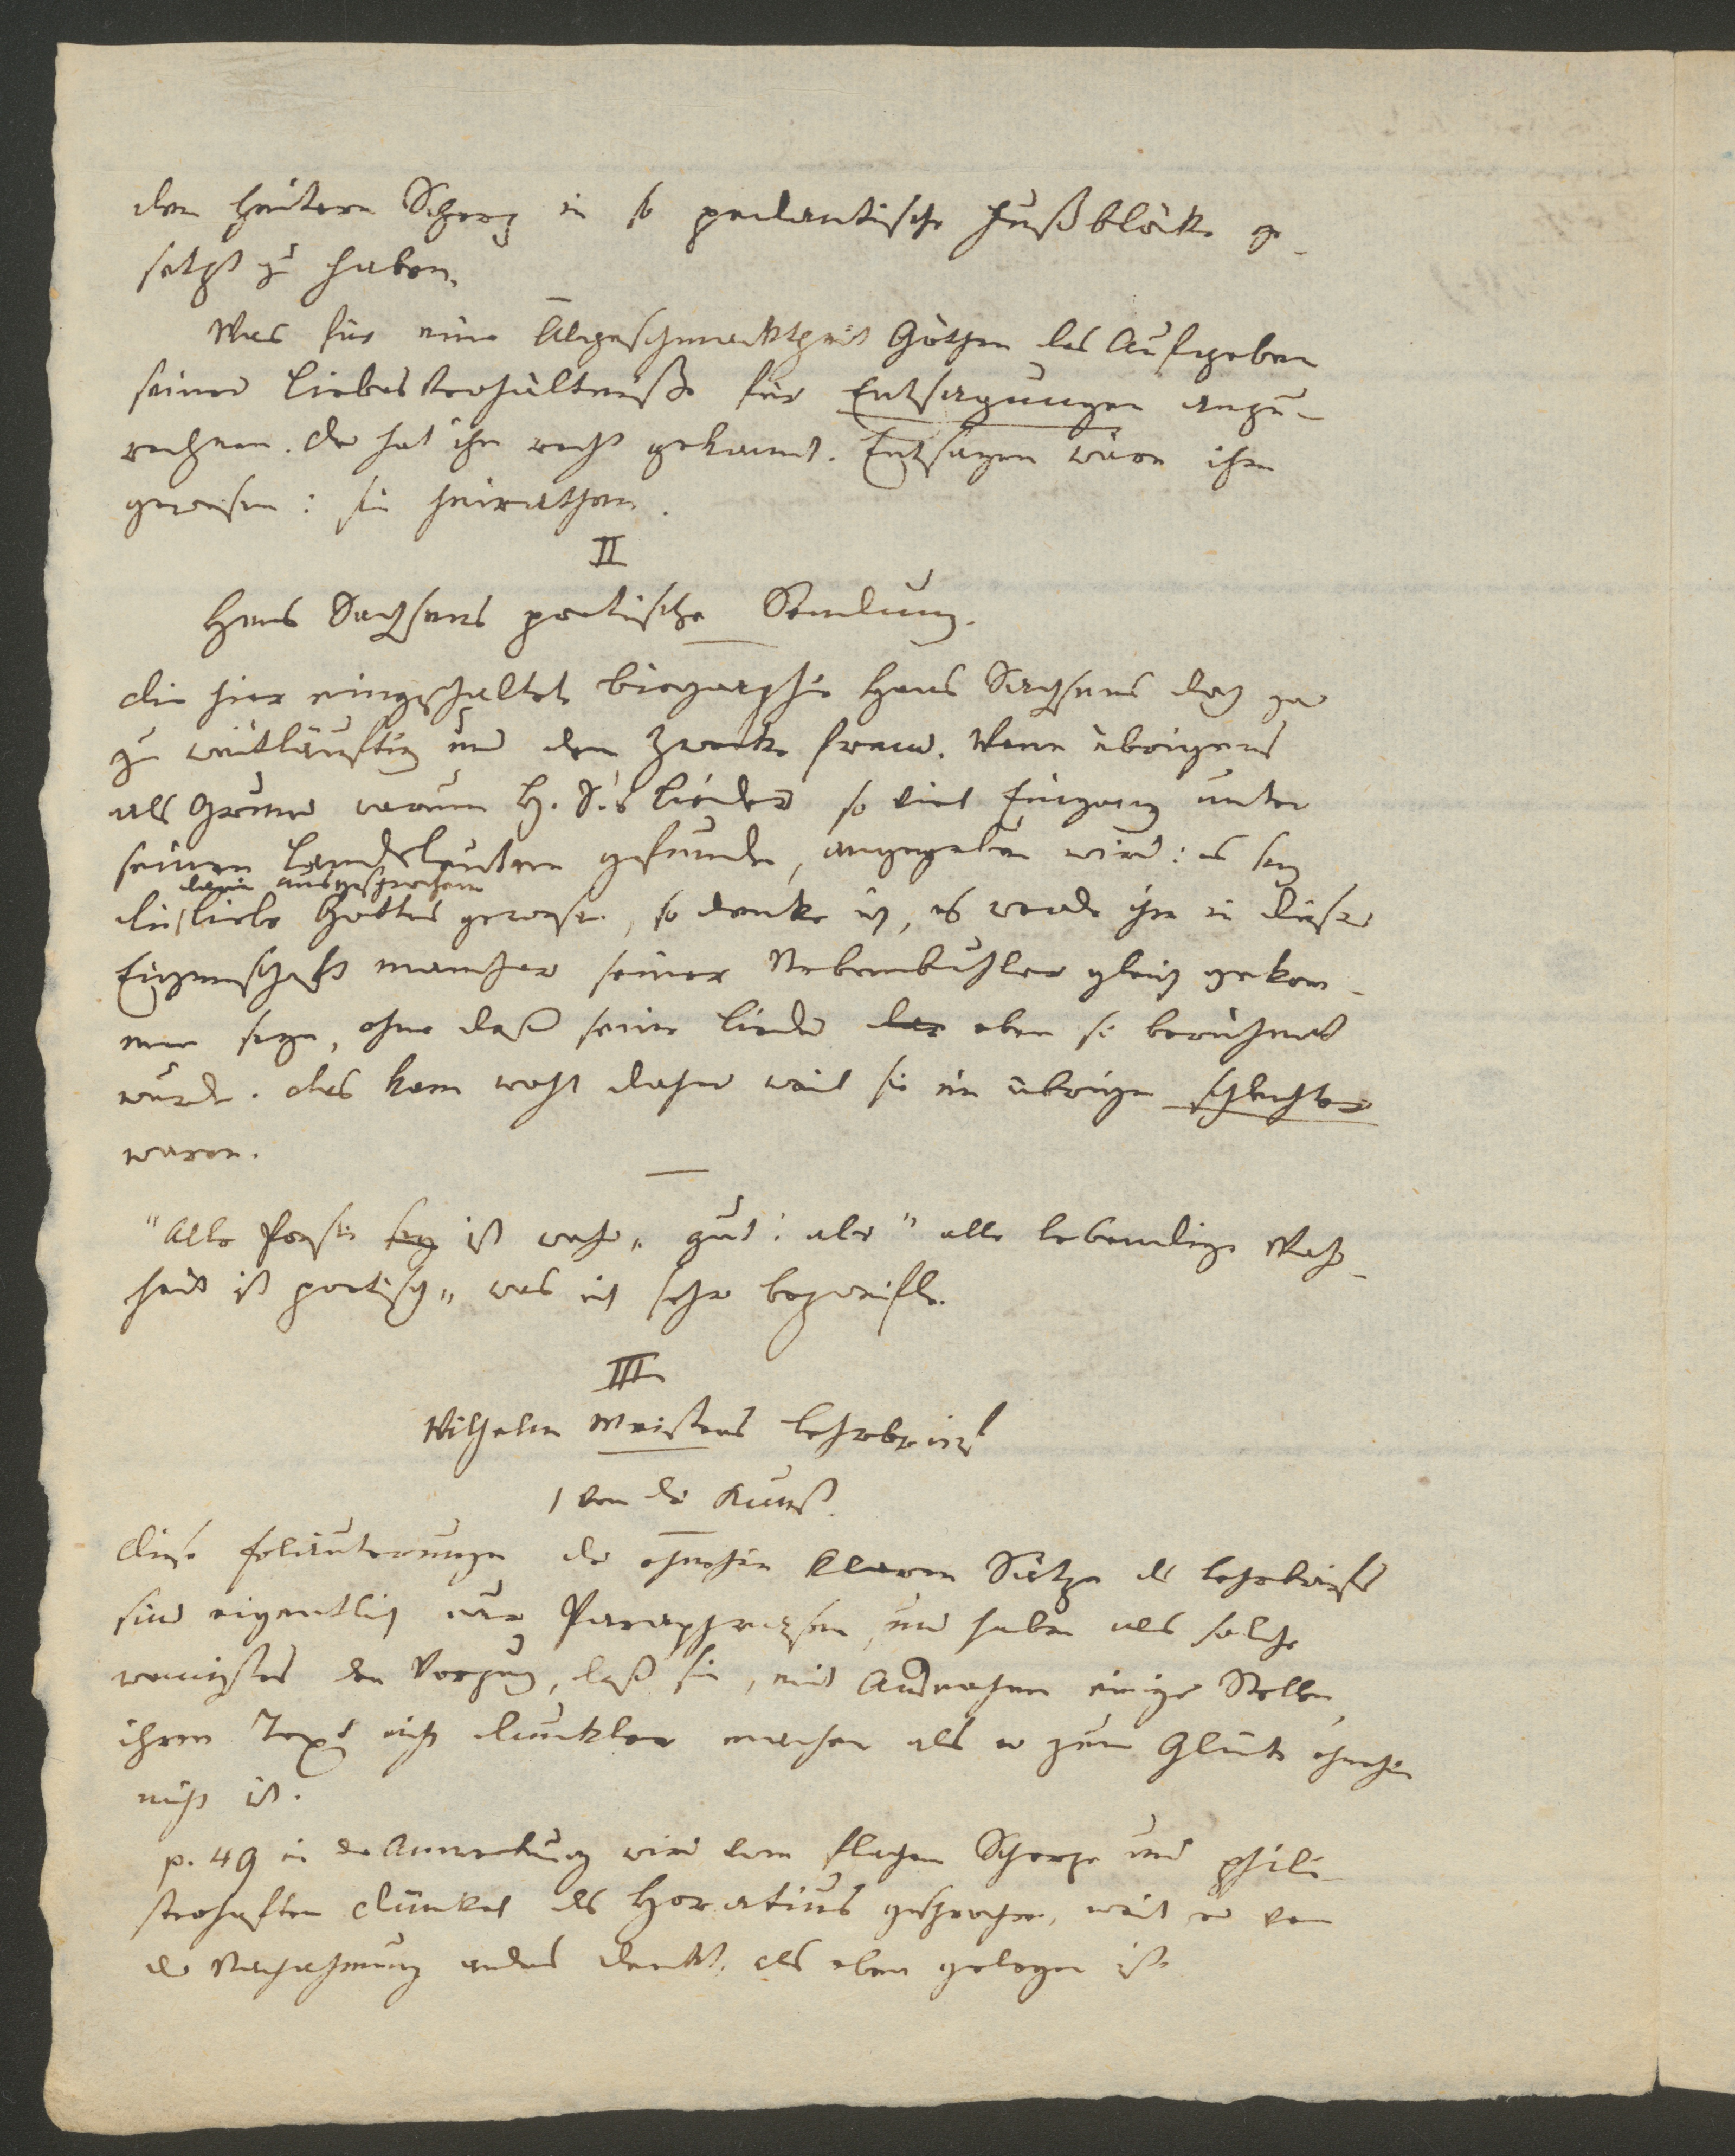 den heitern Scherz in so pedantische Fußblöcke ge-
setzt zu haben.
Was für eine Abgeschmacktheit Göthen das Aufgeben
seiner Liebesverhältniße für Entsagungen anzu-
rechnen. Der hat ihn recht gekannt. Entsagen wäre ihm
gewesen: sie heirathen.
II
Hans Sachsens poetische Sendung.
Die hier eingeschaltete Biographie Hans Sachsens doch gar
zu weitläuftig und dem Zwecke fremd. Wenn übrigens
als Grund warum H. S.'s Lieder so viel Eingang unter
seinen Landsleuten gefunden, angegeben wird: es sey
darin ausgesprochene
die Liebe Gottes gewesen, so denke ich, es werde ihm in dieser
Eigenschaft mancher seiner Nebenbuhler gleich gekom-
men seyn, ohne daß seine Lieder eben so berühmt
wurden. Das kam wohl daher weil sie im übrigen schlechter
waren.
"Alle Poesie sey ist wahr" gut: aber "alle lebendige Wahr-
heit ist poetisch" was ich sehr bezweifle.
III
Wilhelm Meisters Lehrbrief
1 Von der Kunst.
Diese Erläuterungen der ohnehin klaren Sätze des Lehrbriefes
sind eigentlich nur Paraphrasen, und haben als solche
wenigstens den Vorzug, daß sie, mit Ausnahme einiger Stellen,
ihren Text nicht dunkler machen als er zum Glück ohnehin
nicht ist.
p. 49 in der Anmerkung wird vom flachen Scherze und phili-
sterhaften Dünkel des Horatius gesprochen, weil er von
der Nachahmung anders denkt, als eben gelegen ist.